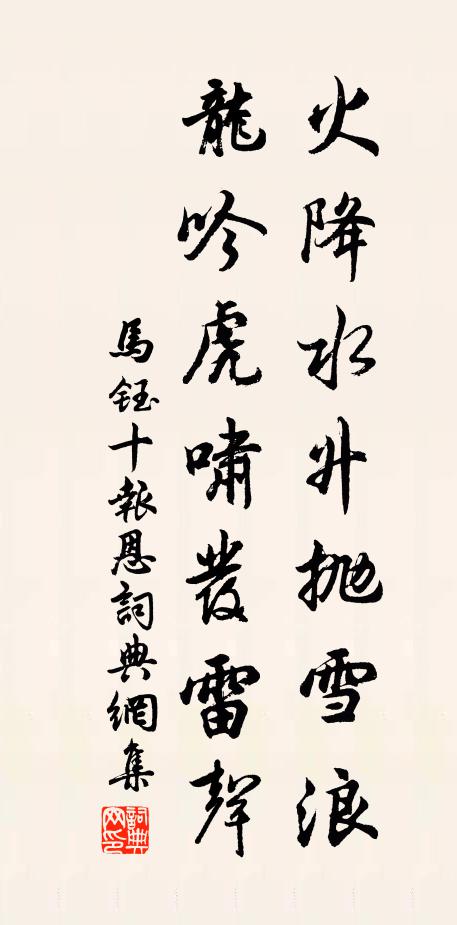 火降水升拋雪浪
龍吟虎嘯發雷聲
馬鈺十報恩詞典網集
詞典網印